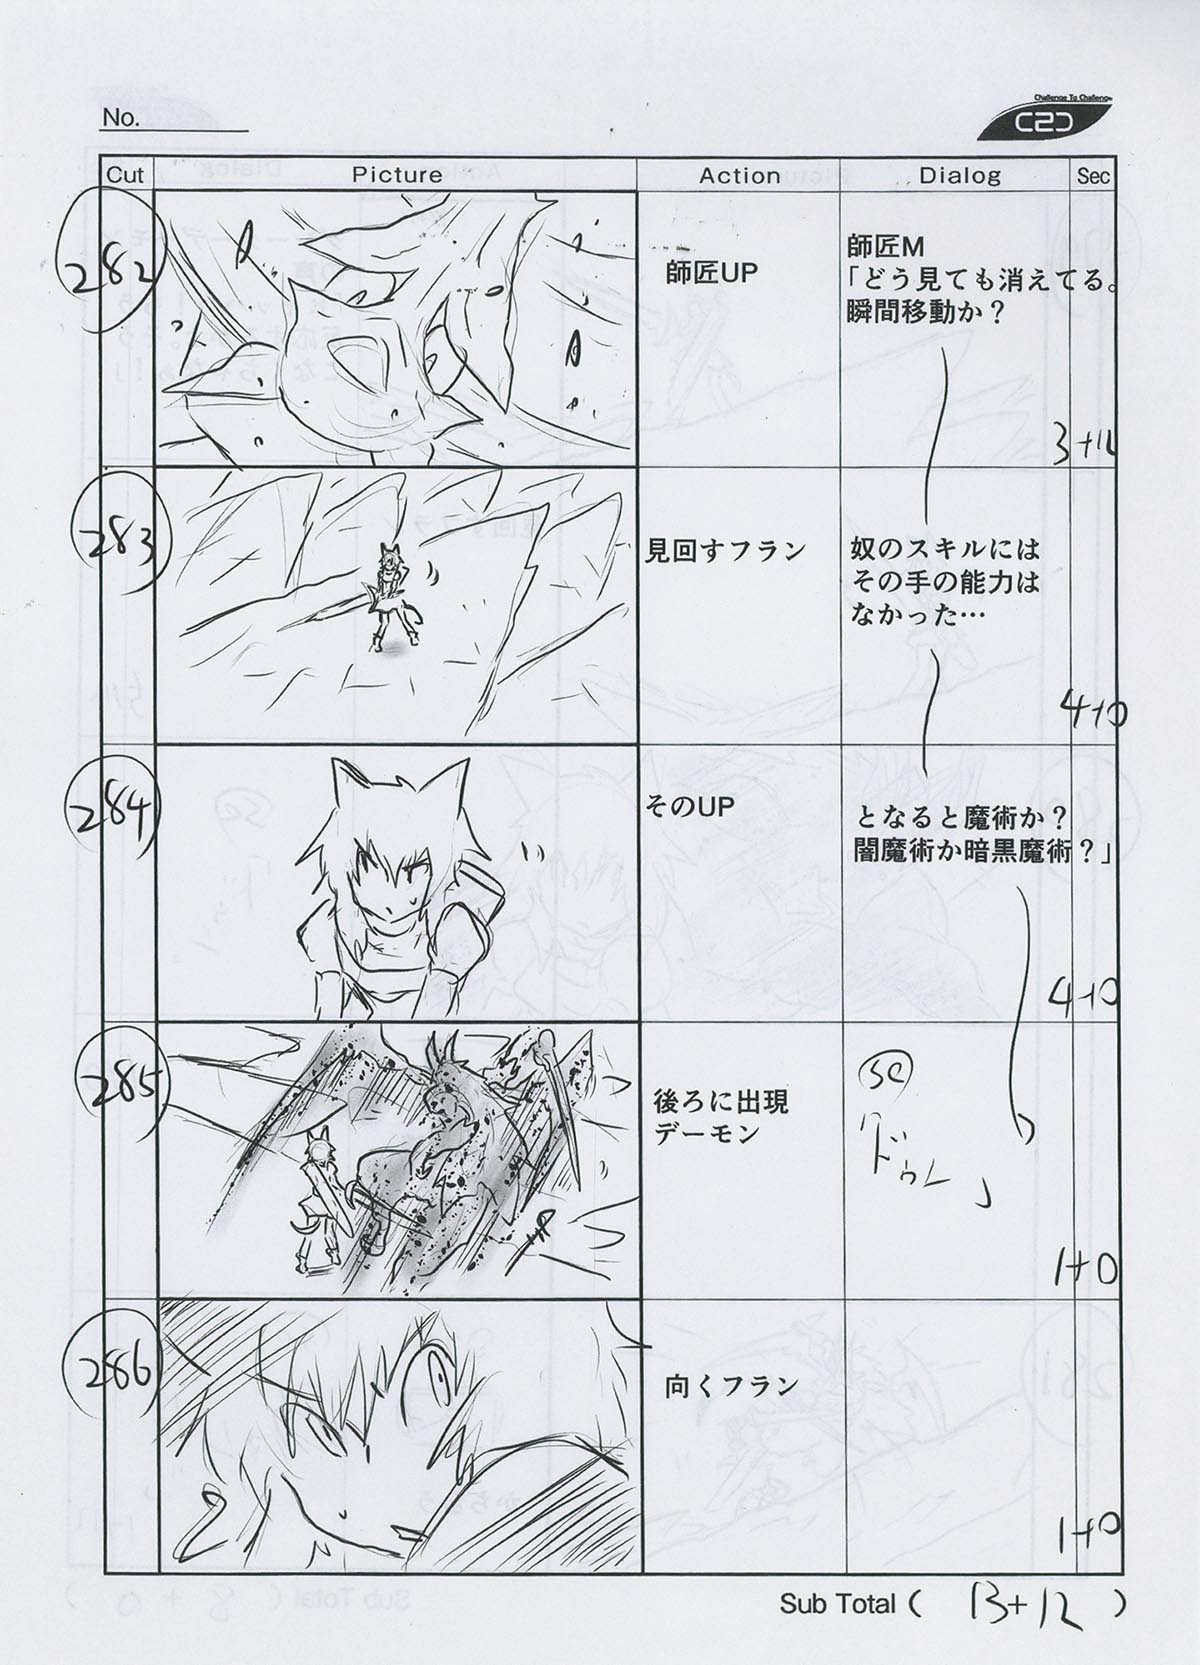 Challenge To Challenge
C2C
No.
Cut Picture Action Dialog Sec
282
師匠UP
師匠M
「どう見ても消えてる。
瞬間移動か？
3+12
283
見回すフラン
奴のスキルには
その手の能力は
なかった…
4+0
284
そのUP
となると魔術か？
闇魔術か暗黒魔術？」
4+0
285
後ろに出現
デーモン
SE
1+0
286
向くフラン
1+0
Sub Total ( 13+12 )